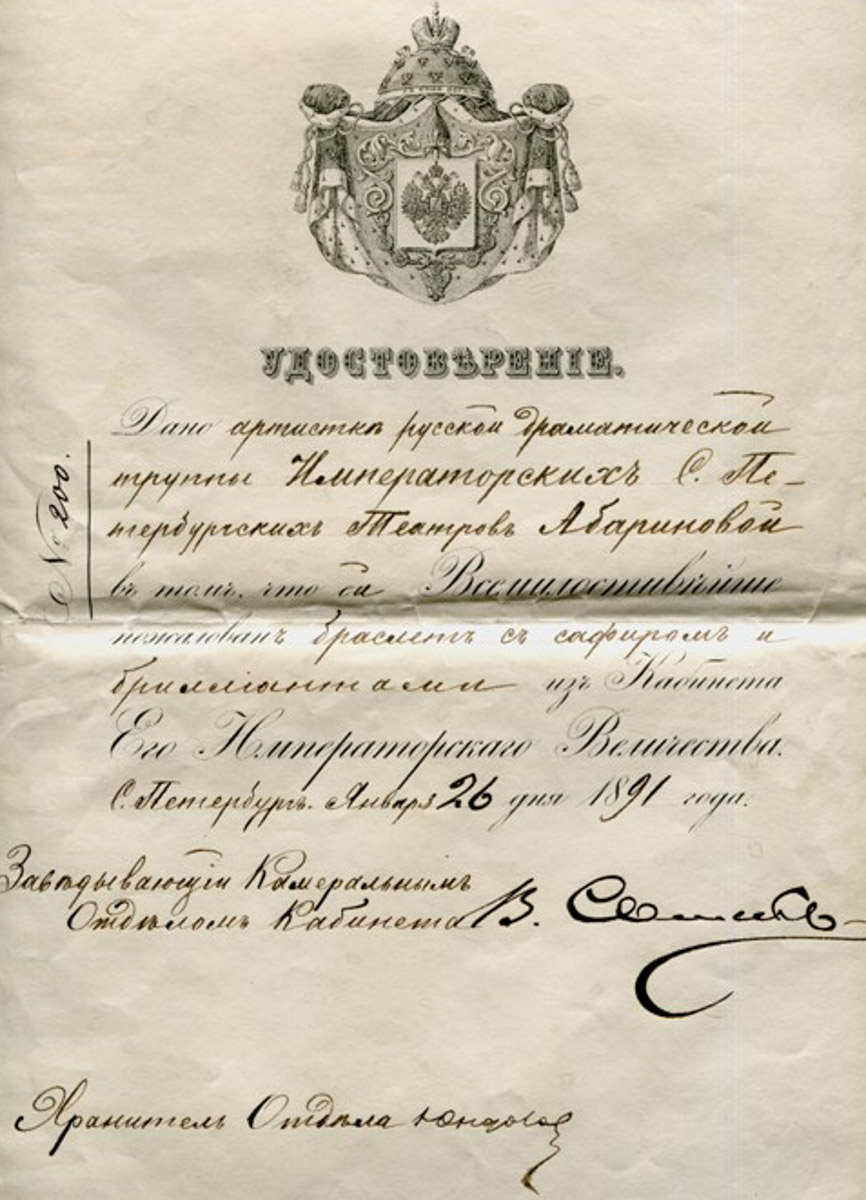 УДОСТОВѢРЕНІЕ.
№ 200.
Дано артисткѣ русской драматической
труппы Императорскихъ С. Пе-
тербургскихъ Театровъ Абариновой
въ томъ, что ей Всемилостивѣйше
пожалованъ браслетъ съ сафиромъ и
бриллiантами изъ Кабинета
Его Императорскаго Величества.
С. Петербургъ. Января 26 дня 1891 года.
Завѣдывающій Камеральнымъ
Отдѣломъ Кабинета В.
Хранитель Отдѣла